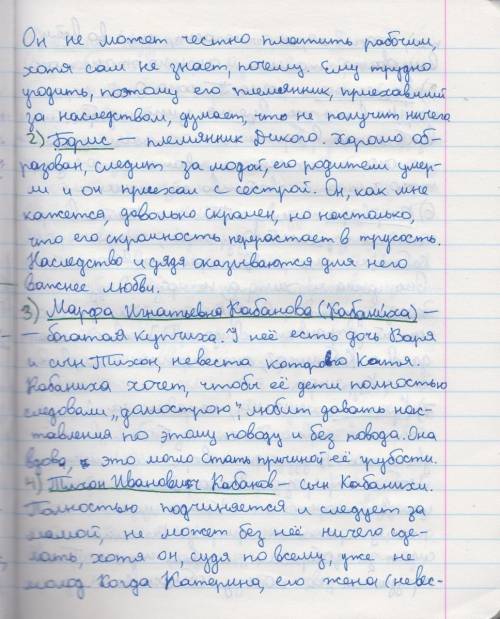 Он не может честно платить рабочим,
хотя сам не знает, почему. Ему трудно
угодить, поэтому его племянник, приехавший
за наследством, думает, что не получит ничего
2) Борис — племянник Дикого. Хорошо об-
разован, следит за модой, его родители умер-
ли и он приехал с сестрой. Он, как мне
кажется, довольно скромен, но настолько,
что его скромность перерастает в трусость.
Наследство и дядя оказываются для него
важнее любви.
3) Марфа Игнатьевна Кабанова (Кабаниха) —
— богатая купчиха. У неё есть дочь Варя
и сын Тихон, невеста которого Катя.
Кабаниха хочет, чтобы её дети полностью
следовали „домострою", любит давать нас-
тавления по этому поводу и без повода. Она
вдова, это могло стать причиной её грубости.
4) Тихон Иванович Кабанов — сын Кабанихи.
Полностью подчиняется и следует за
мамой, не может без неё ничего сде-
лать, хотя он, судя по всему, уже не
молод Когда Катерина, его жена (невес-